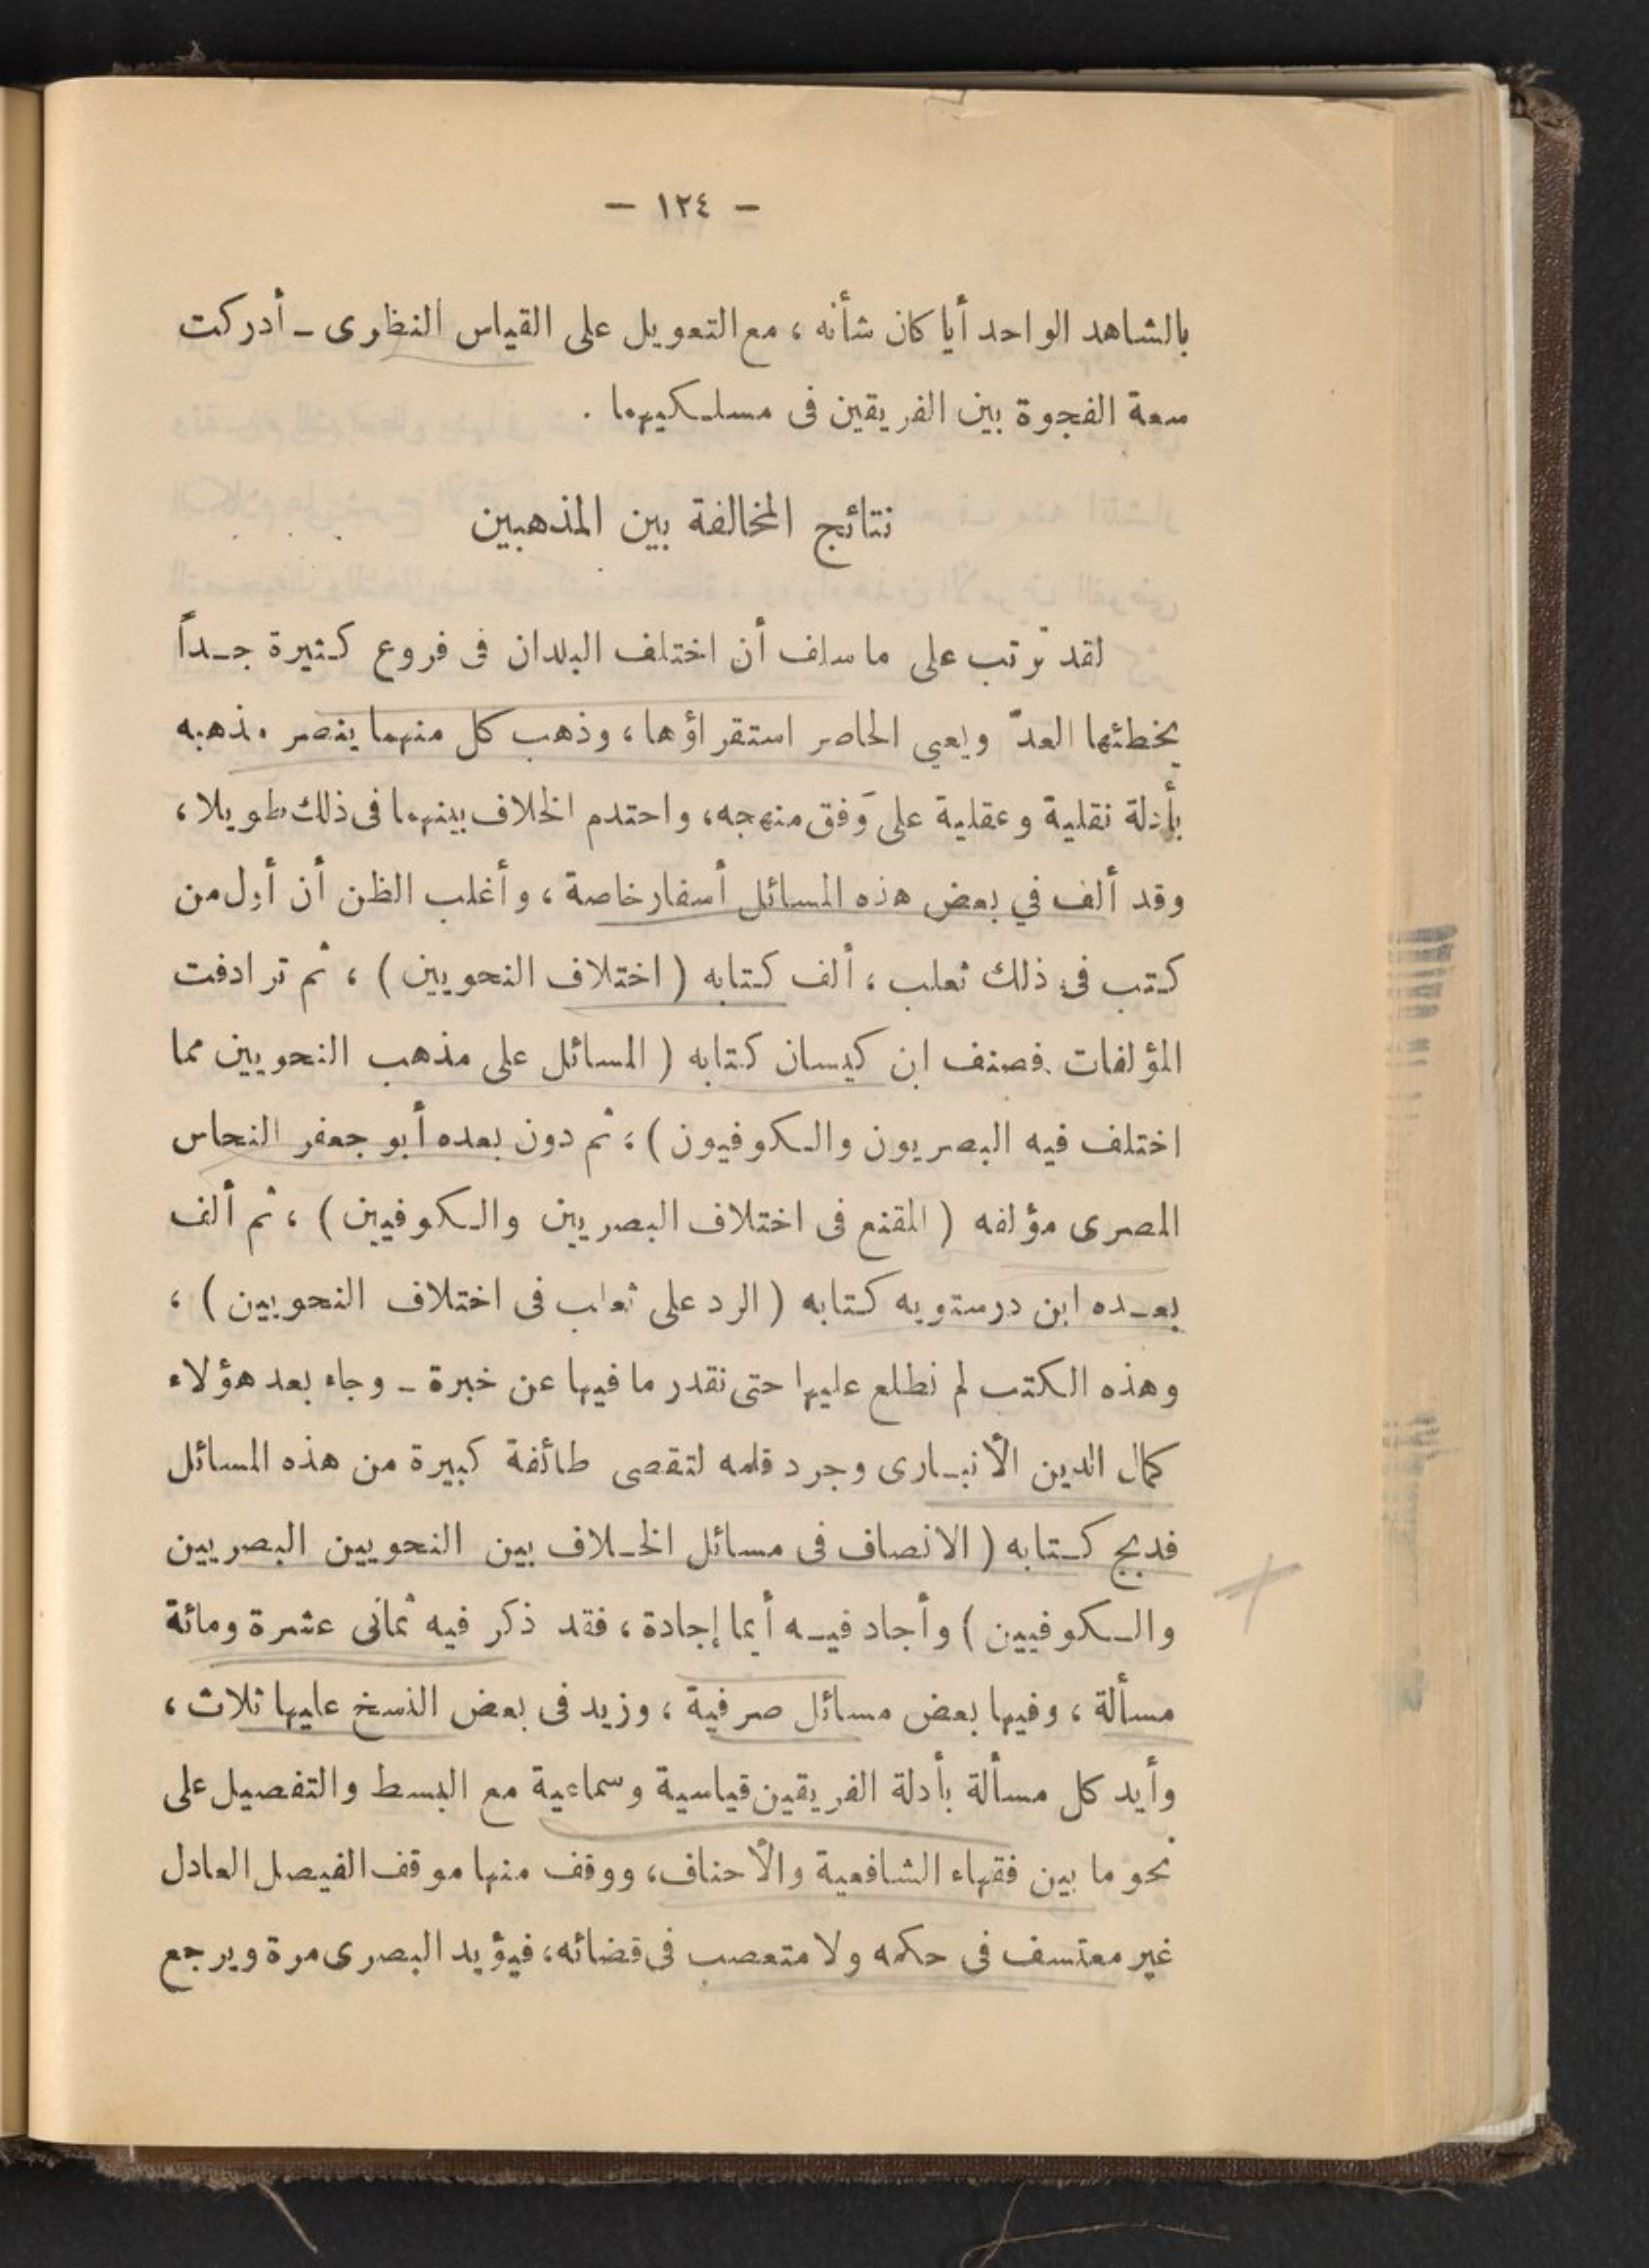 — ١٢٤ —
بالشاهد الواحد أيا كان شأنه ، مع التعويل على القياس النظرى ـ أدركت
سعة الفجوة بين الفريقين فى مسلكيهما .
نتائج المخالفة بين المذهبين
لقد ترتب على ما سلف أن اختلف البلدان فى فروع كثيرة جداً
يخطئها العدّ ويعيى الحاصر استقراؤها ، وذهب كل منهما ينصر مذهبه
بأدلة نقلية وعقلية على وَفق منهجه ، واحتدم الخلاف بينهما فى ذلك طويلا ،
وقد ألف في بعض هذه المسائل أسفار خاصة ، وأغلب الظن أن أول من
كتب فى ذلك ثعلب ، ألف كتابه ( اختلاف النحويين ) ، ثم ترادفت
المؤلفات فصنف ابن كيسان كتابه ( المسائل على مذهب النحويين مما
اختلف فيه البصريون والكوفيون ) ، ثم دون بعده أبو جعفر النحاس
المصرى مؤلفه ( المقنع فى اختلاف البصريين والكوفيين ) ، ثم ألف
بعده ابن درستويه كتابه ( الرد على ثعلب فى اختلاف النحويين ) ،
وهذه الكتب لم نطلع عليها حتى نقدر ما فيها عن خبرة ـ وجاء بعد هؤلاء
كمال الدين الأنبارى وجرد قلمه لتقصى طائفة كبيرة من هذه المسائل
فدبج كتابه ( الانصاف فى مسائل الخلاف بين النحويين البصريين
والكوفيين ) وأجاد فيه أيما إجادة ، فقد ذكر فيه ثمانى عشرة ومائة
مسألة ، وفيها بعض مسائل صرفية ، وزيد فى بعض النسخ عليها ثلاث ،
وأيد كل مسألة بأدلة الفريقين قياسية وسماعية مع البسط والتفصيل على
نحو ما بين فقهاء الشافعية والأحناف ، ووقف منها موقف الفيصل العادل
غير معتسف فى حكمه ولا متعصب فى قضائه ، فيؤيد البصرى مرة ويرجع